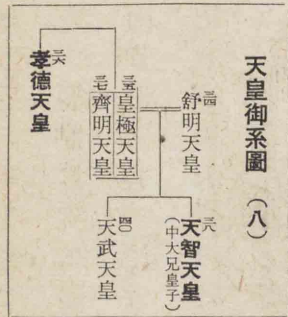 天皇御系圖（八）
三四
舒明天皇
三五
皇極天皇
三七
齊明天皇
三六
孝德天皇
三八
天智天皇
（中大兄皇子）
四〇
天武天皇